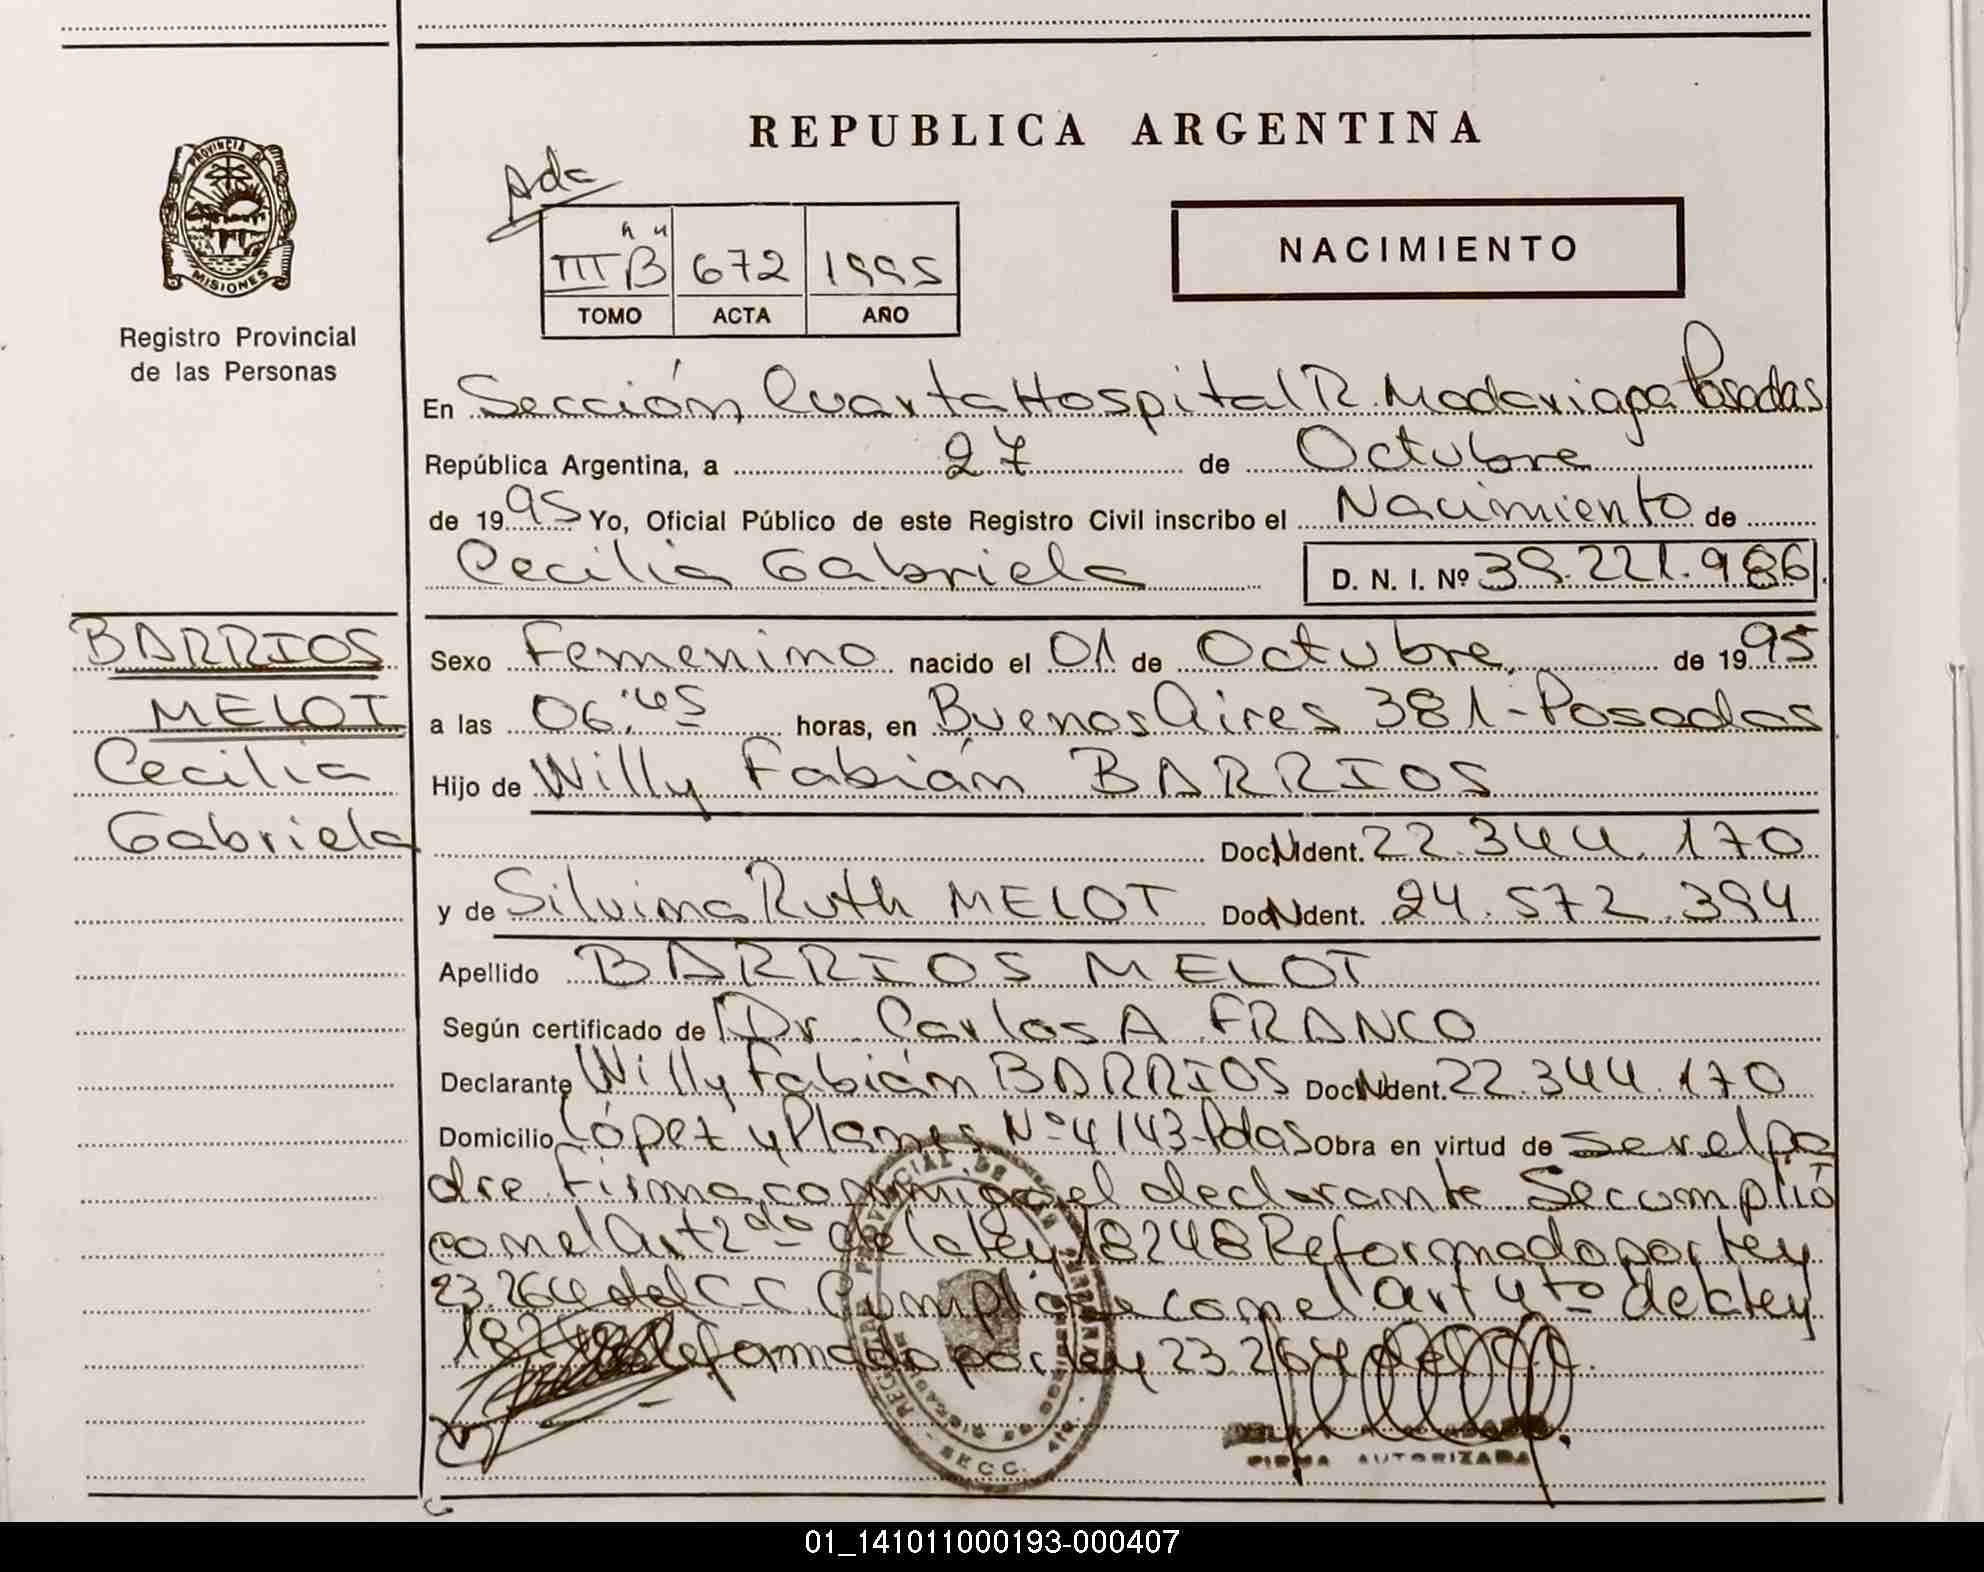 REPUBLICA ARGENTINA
Ada
PROVINCIA DE
MISIONES
Registro Provincial
de las Personas
NACIMIENTO
III "B" 672 1995
TOMO ACTA AÑO
En Sección Cuarta Hospital R. Madariaga Posadas
República Argentina, a 27 de Octubre
de 1995 Yo, Oficial Público de este Registro Civil inscribo el Nacimiento de
Cecilia Gabriela D. N. I. Nº 39.221.986
BARRIOS
MELOT
Cecilia
Gabriela
Sexo Femenino nacido el 01 de Octubre de 1995
a las 06:45 horas, en Buenos Aires 381-Posadas
Hijo de Willy Fabián BARRIOS
Doc N Ident. 22.344.170
y de Silvina Ruth MELOT Doc N Ident. 24.572.394
Apellido BARRIOS MELOT
Según certificado de Dr. Carlos A. FRANCO
Declarante Willy Fabián BARRIOS Doc N Ident. 22.344.170
Domicilio López y Planes Nº 4143-Pdas Obra en virtud de ser el pa
dre. Firma conmigo el declarante. Se cumplió
con el Art 2do de la Ley 18248 Reformado por Ley
23.264 del C.C. Cumpliose con el art 4to de la Ley
18248 Reformado por Ley 23.264
SECC. 4ta
FIRMA AUTORIZADA
01_141011000193-000407